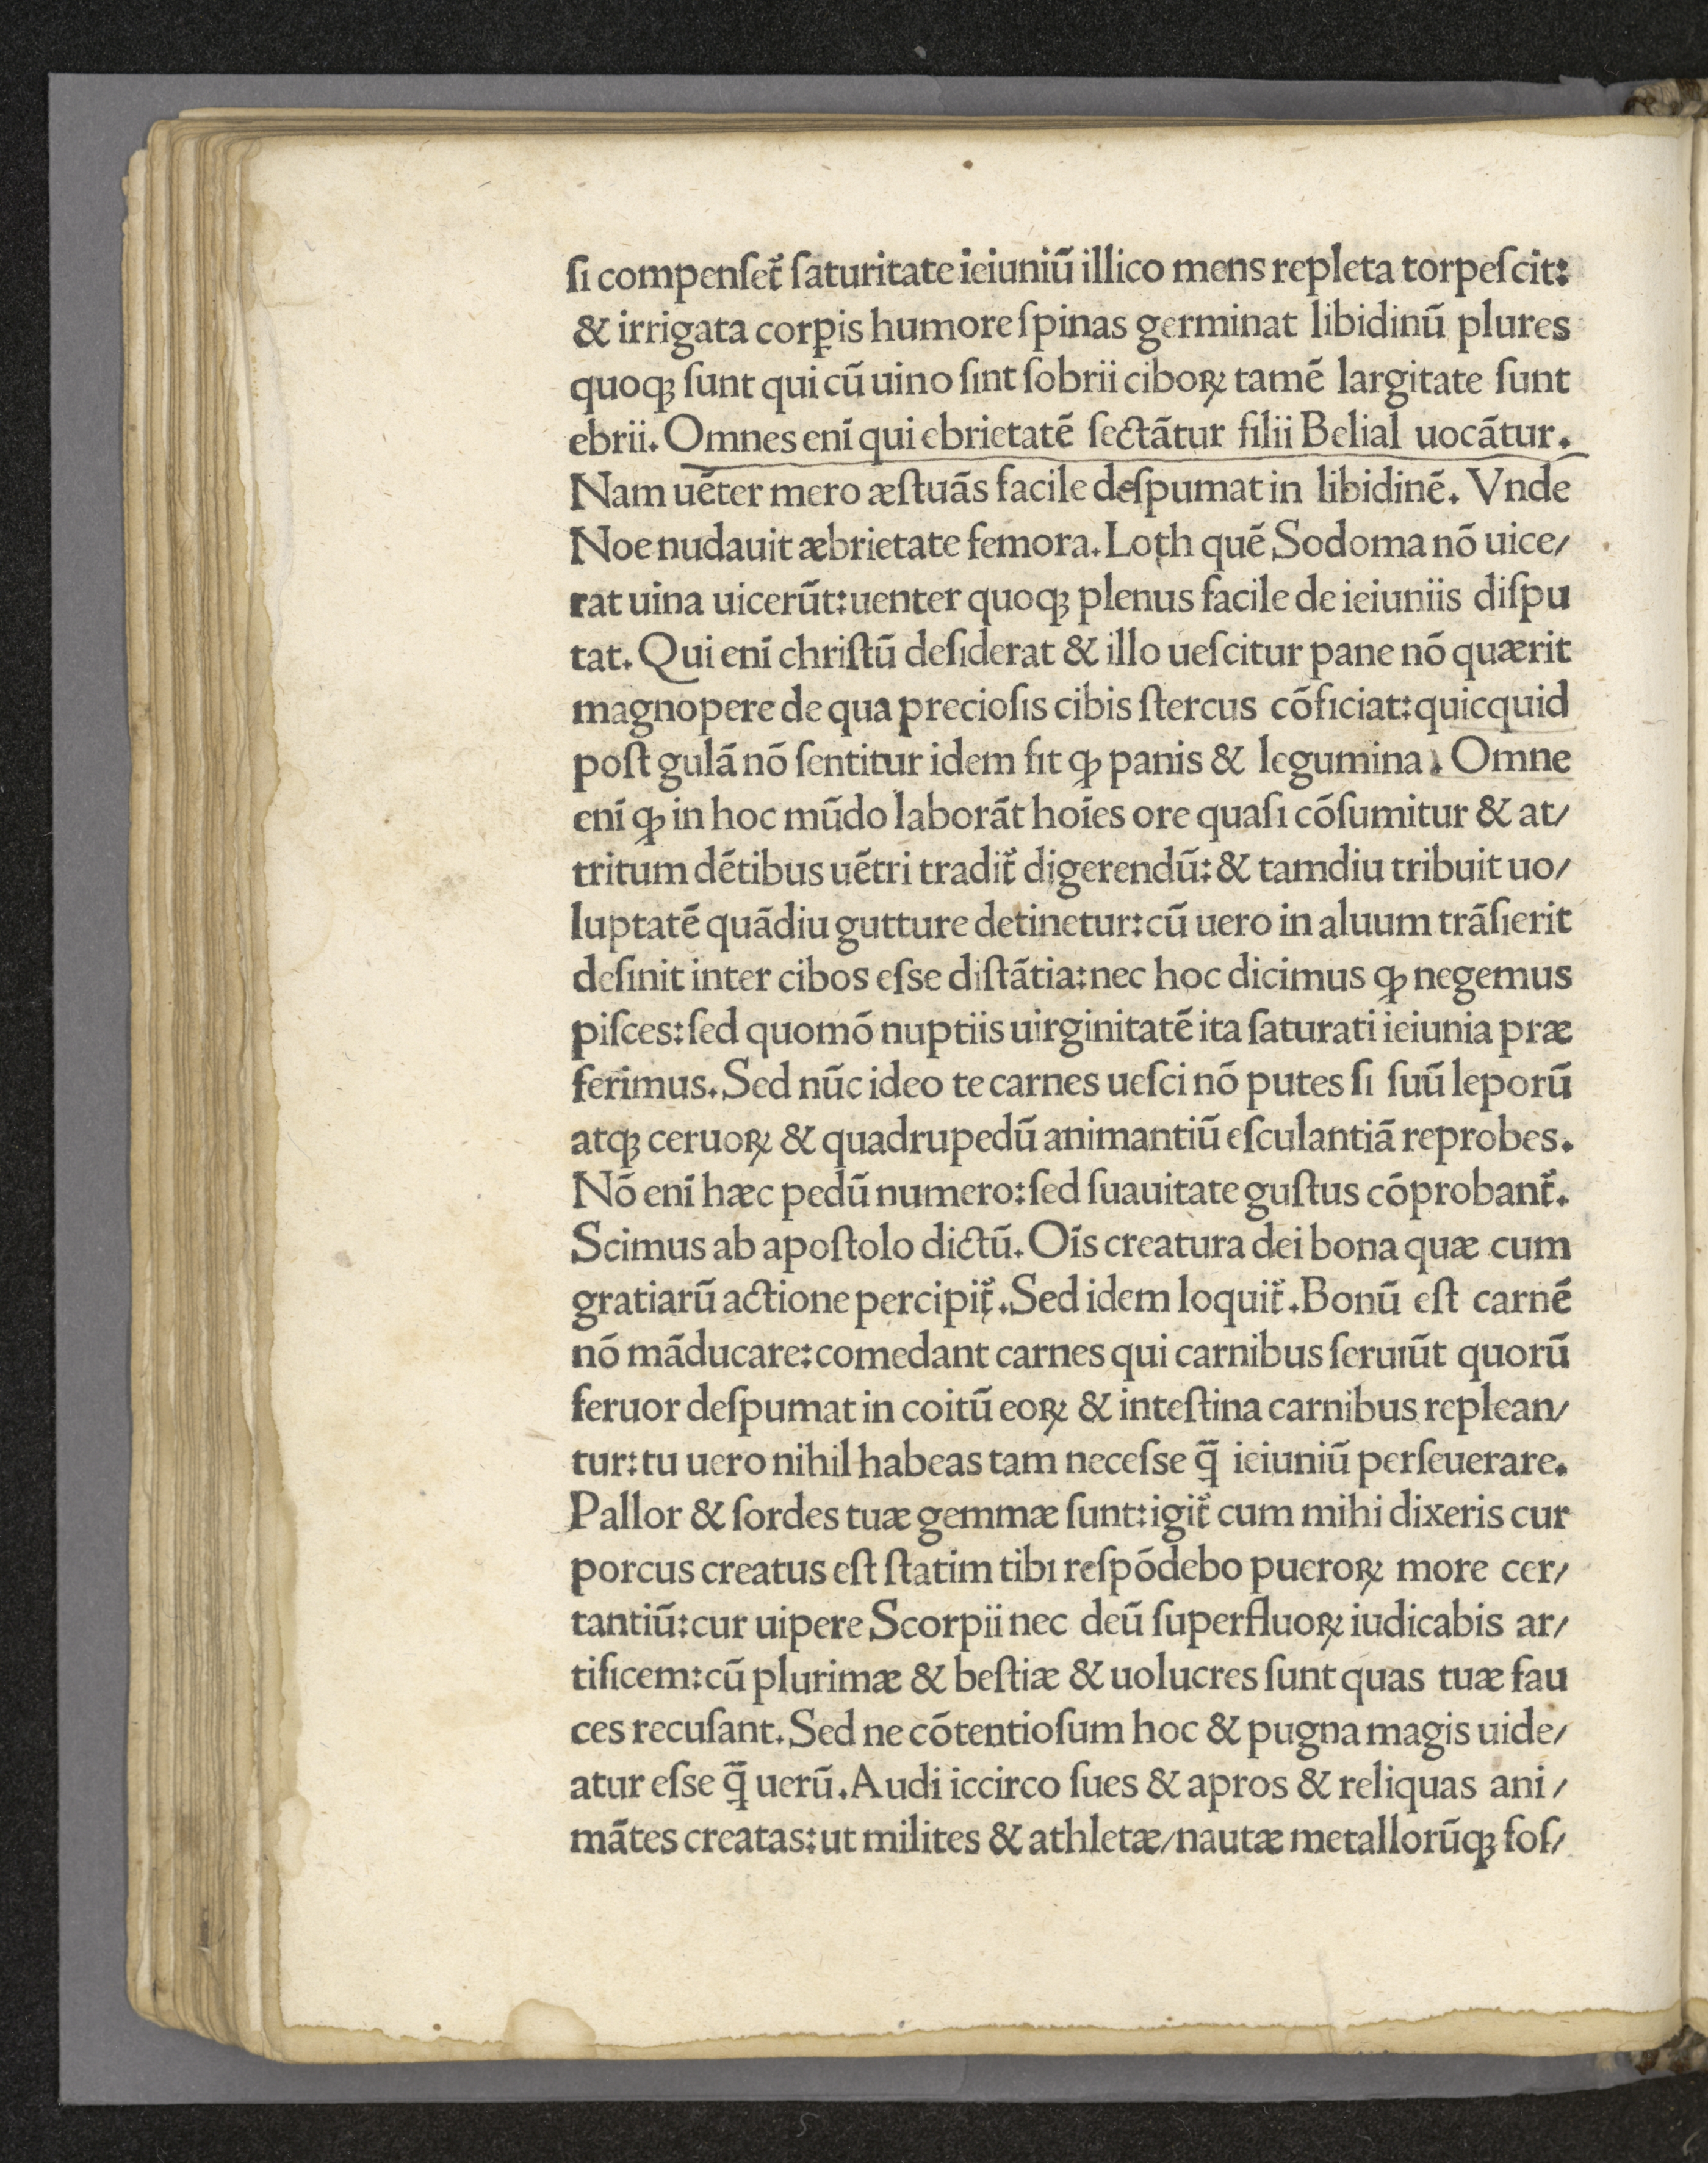 ſi compenſet᷑ ſaturitate ieiuniũ illico mens repleta torpeſcit:
& irrigata corꝑis humore ſpinas germinat libidinũ plures
quoqꝫ ſunt qui cũ uino ſint ſobrii ciboꝝ tamẽ largitate ſunt
ebrii. Omnes enĩ qui ebrietatẽ ſectãtur filii Belial uocãtur.
Nam uẽter mero æſtuãs facile deſpumat in libidinẽ. Vnde
Noe nudauit æbrietate femora. Loth quẽ Sodoma nõ uice/
rat uina uicerũt: uenter quoqꝫ plenus facile de ieiuniis diſpu
tat. Qui enĩ chriſtũ deſiderat & illo ueſcitur pane nõ quærit
magnopere de qua precioſis cibis ſtercus cõficiat: quicquid
poſt gulã nõ ſentitur idem fit ꝙ panis & legumina. Omne
enĩ ꝙ in hoc mũdo laborãt hoĩes ore quaſi cõſumitur & at/
tritum dẽtibus uẽtri tradit᷑ digerendũ: & tamdiu tribuit uo/
luptatẽ quãdiu gutture detinetur: cũ uero in aluum trãſierit
deſinit inter cibos eſse diſtãtia: nec hoc dicimus ꝙ negemus
piſces: ſed quomõ nuptiis uirginitatẽ ita ſaturati ieiunia præ
ferimus. Sed nũc ideo te carnes ueſci nõ putes ſi ſuũ leporũ
atqꝫ ceruoꝝ & quadrupedũ animantiũ eſculantiã reprobes.
Nõ enĩ hæc pedũ numero: ſed ſuauitate guſtus cõprobant᷑.
Scimus ab apoſtolo dictũ. Oĩs creatura dei bona quæ cum
gratiarũ actione percipit᷑. Sed idem loquit᷑. Bonũ eſt carnẽ
nõ mãducare: comedant carnes qui carnibus ſeruıũt quorũ
feruor deſpumat in coitũ eoꝝ & inteſtina carnibus replean/
tur: tu uero nihil habeas tam neceſse q̃ ieiuniũ perſeuerare.
Pallor & ſordes tuæ gemmæ ſunt: igit᷑ cum mihi dixeris cur
porcus creatus eſt ſtatim tibı reſpõdebo pueroꝝ more cer/
tantiũ: cur uipere Scorpii nec deũ ſuperfluoꝝ iudicabis ar/
tificem: cũ plurimæ & beſtiæ & uolucres ſunt quas tuæ fau
ces recuſant. Sed ne cõtentioſum hoc & pugna magis uide/
atur eſse q̃ uerũ. Audi iccirco ſues & apros & reliquas ani/
mãtes creatas: ut milites & athletæ/nautæ metallorũqꝫ foſ/